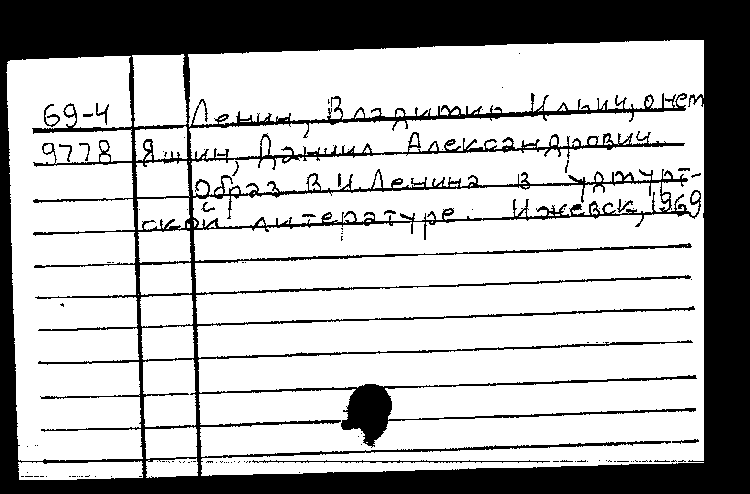 69-4 Ленин, Владимир Ильич, о нем
9778 Яшин, Даниил Александрович.
Образ В.И.Ленина в удмурт-
ской литературе. Ижевск, 1969